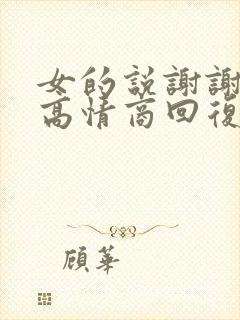 女的說謝謝
高情商回復
顧華